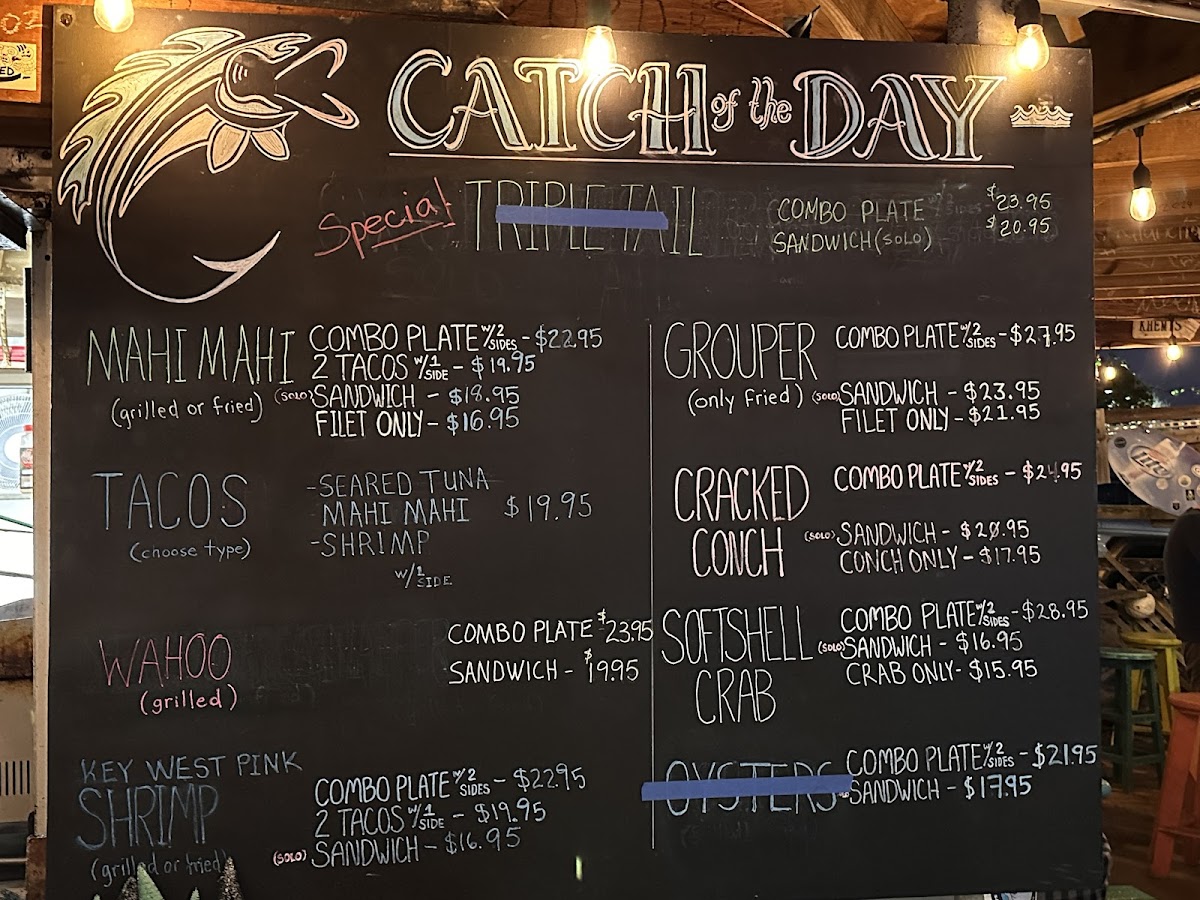 CATCH of the DAY
Special TRIPLE TAIL COMBO PLATE $23.95
SANDWICH (SOLO) $20.95
MAHI MAHI
(grilled or fried)
COMBO PLATE W/2 SIDES - $22.95
2 TACOS W/1 SIDE - $19.95
(SOLO) SANDWICH - $18.95
FILET ONLY - $16.95
TACOS
(choose type)
- SEARED TUNA
MAHI MAHI $19.95
- SHRIMP
W/1 SIDE
WAHOO
(grilled)
COMBO PLATE $23.95
SANDWICH - $19.95
KEY WEST PINK
SHRIMP
(grilled or fried)
COMBO PLATE W/2 SIDES - $22.95
2 TACOS W/1 SIDE - $19.95
(SOLO) SANDWICH - $16.95
GROUPER
(only fried)
COMBO PLATE W/2 SIDES - $27.95
(SOLO) SANDWICH - $23.95
FILET ONLY - $21.95
CRACKED
CONCH
COMBO PLATE W/2 SIDES - $24.95
(SOLO) SANDWICH - $20.95
CONCH ONLY - $17.95
SOFTSHELL
CRAB
COMBO PLATE W/2 SIDES - $28.95
(SOLO) SANDWICH - $16.95
CRAB ONLY - $15.95
OYSTERS
COMBO PLATE W/2 SIDES - $21.95
SANDWICH - $17.95